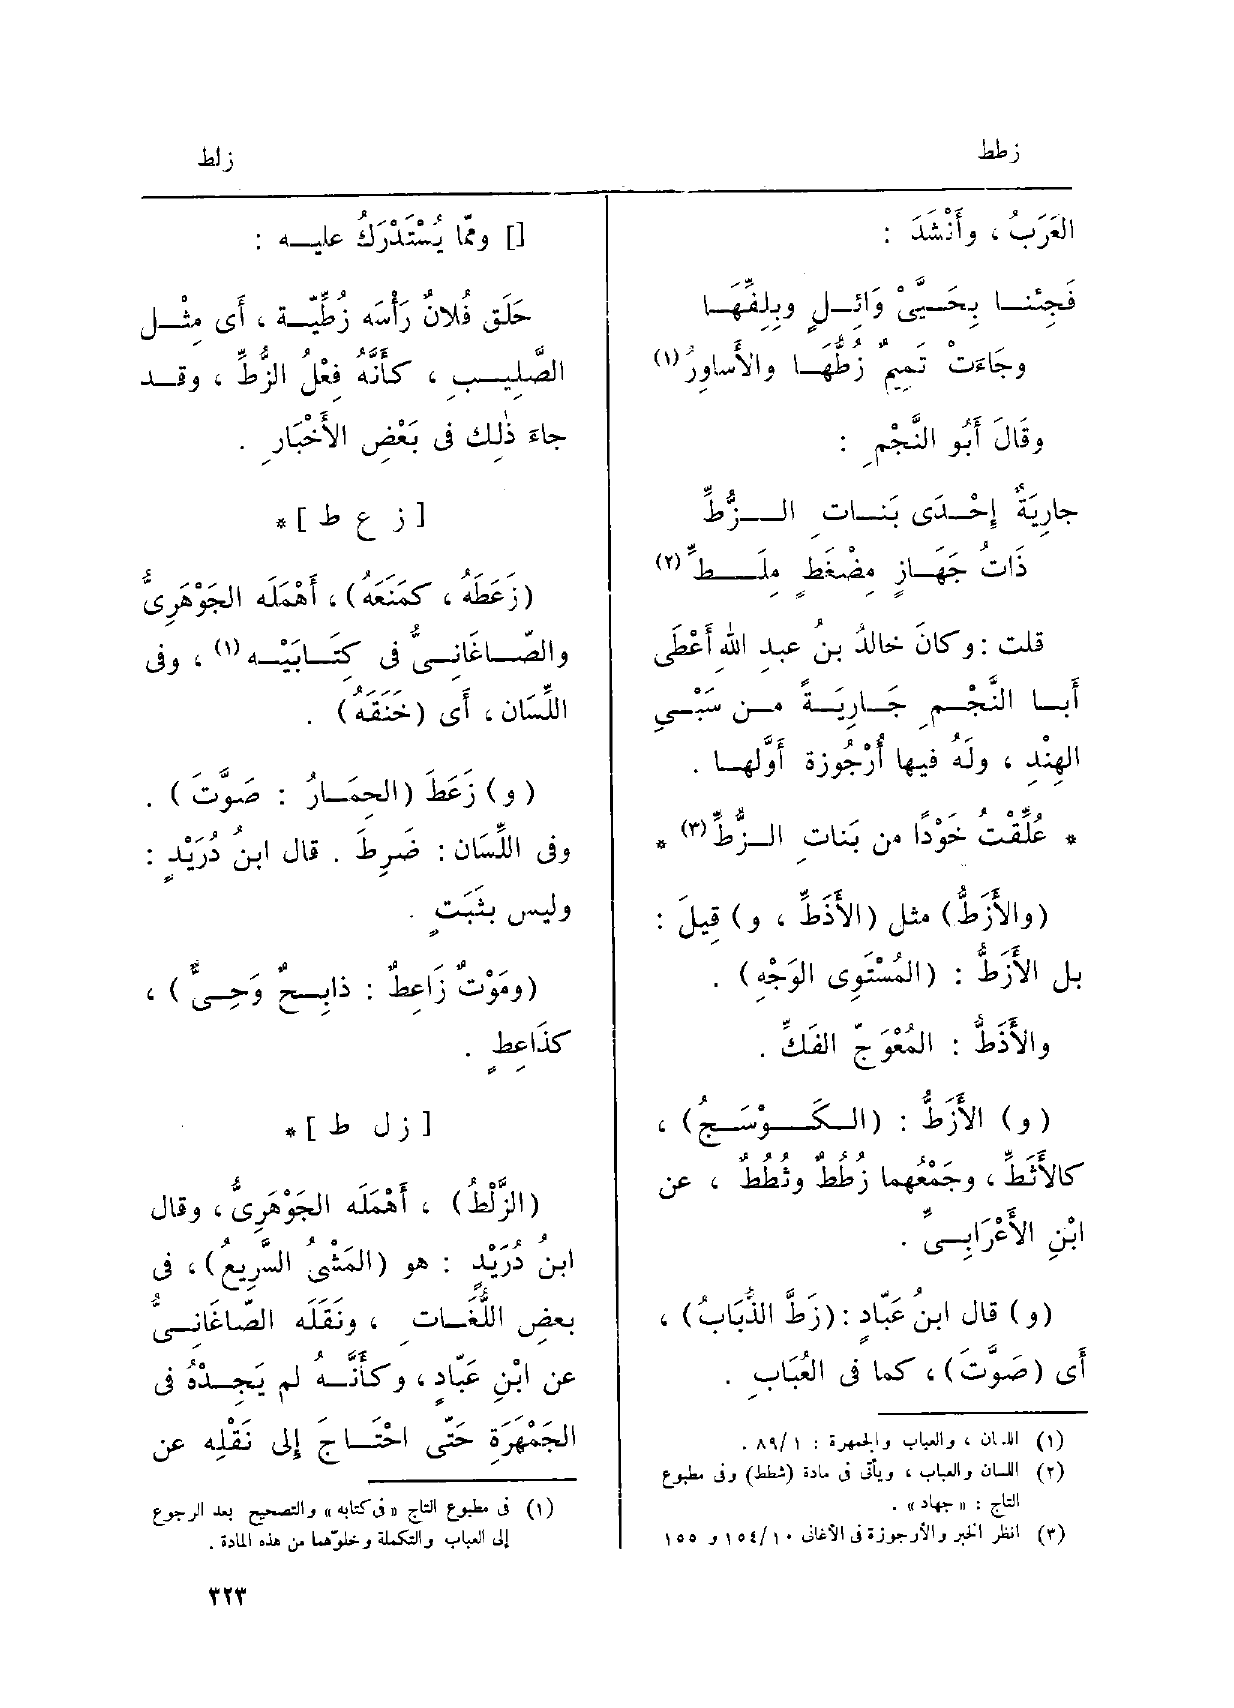 زطط
زلط
العَرَبُ ، وأَنْشَدَ :
فَجِئْنــا بِحَــيَّىْ وَائِــلٍ وبِلِفِّهَــا
وجَاءَتْ تَمِيمٌ زُطُّهَــا والأَساوِرُ (١)
وقَالَ أَبُو النَّجْمِ :
جارِيَةٌ إِحْــدَى بَنــاتِ الــزُّطِّ
ذَاتُ جَهَــازٍ مِضْغَطٍ مِلَــطِّ (٢)
قلت : وكانَ خالدُ بنُ عبدِ الله أَعْطَى
أَبــا النَّجْــمِ جَــارِيَــةً مــن سَبْــىِ
الهِنْدِ ، ولَهُ فيها أُرْجُوزة أَوَّلهــا .
* عُلِّقْتُ خَوْدًا من بَناتِ الــزُّطِّ (٣) *
(والأَزَطُّ) مثل (الأَذَطِّ ، و) قِيلَ :
بل الأَزَطُّ : (المُسْتَوِى الوَجْهِ) .
والأَذَطُّ : المُعْوَجّ الفَكِّ .
(و) الأَزَطُّ : (الــكَــوْسَــجُ) ،
كالأَثَطِّ ، وجَمْعُهما زُطُطٌ وثُطُطٌ ، عن
ابْنِ الأَعْرَابِــىِّ .
(و) قال ابنُ عَبّادٍ : (زَطَّ الذُّبَابُ) ،
أَى (صَوَّتَ) ، كما فى العُبَابِ .
(١) اللسان ، والعباب والجمهرة : ١ /٨٩ .
(٢) اللسان والعباب ، ويأتى فى مادة (شطط) وفى مطبوع
التاج : « جهاد » .
(٣) انظر الخبر والأرجوزة فى الأغانى ١٠ /١٥٤ و ١٥٥
[] وممّا يُسْتَدْرَكُ عليــه :
حَلَق فُلانٌ رَأْسَه زُطِّيّــة ، أَى مِثْــل
الصَّلِيــبِ ، كــأَنَّهُ فِعْلُ الزُّطِّ ، وقــد
جاءَ ذٰلِك فى بَعْضِ الأَخْبَارِ .
[ ز ع ط ] *
(زَعَطَهُ ، كمَنَعَهُ) ، أَهْمَلَه الجَوْهَرِىُّ
والصّــاغَانِــىُّ فى كِتَــابَيْــه (١) ، وفى
اللِّسَان ، أَى (خَنَقَهُ) .
(و) زَعَطَ (الحِمَــارُ : صَوَّتَ) .
وفى اللِّسَان : ضَرِطَ . قال ابنُ دُرَيْــدٍ :
وليس بثَبَتٍ .
(ومَوْتٌ زَاعِطٌ : ذابِــحٌ وَحِــىٌّ) ،
كذَاعِطٍ .
[ ز ل ط ] *
(الزَّلْطُ) ، أَهْمَلَه الجَوْهَرِىُّ ، وقال
ابنُ دُرَيْــدٍ : هو (المَشْىُ السَّرِيعُ) ، فى
بعضِ اللُّغَــاتِ ، ونَقَلَه الصّاغَانِــىُّ
عن ابْنِ عَبّادٍ ، وكأَنَّــهُ لم يَجِــدْهُ فى
الجَمْهَرَةِ حَتّى احْتَــاجَ إِلى نَقْلِه عن
(١) فى مطبوع التاج « فى كتابه » والتصحيح بعد الرجوع
إلى العباب والتكملة وخلوّهما من هذه المادة .
٣٢٣